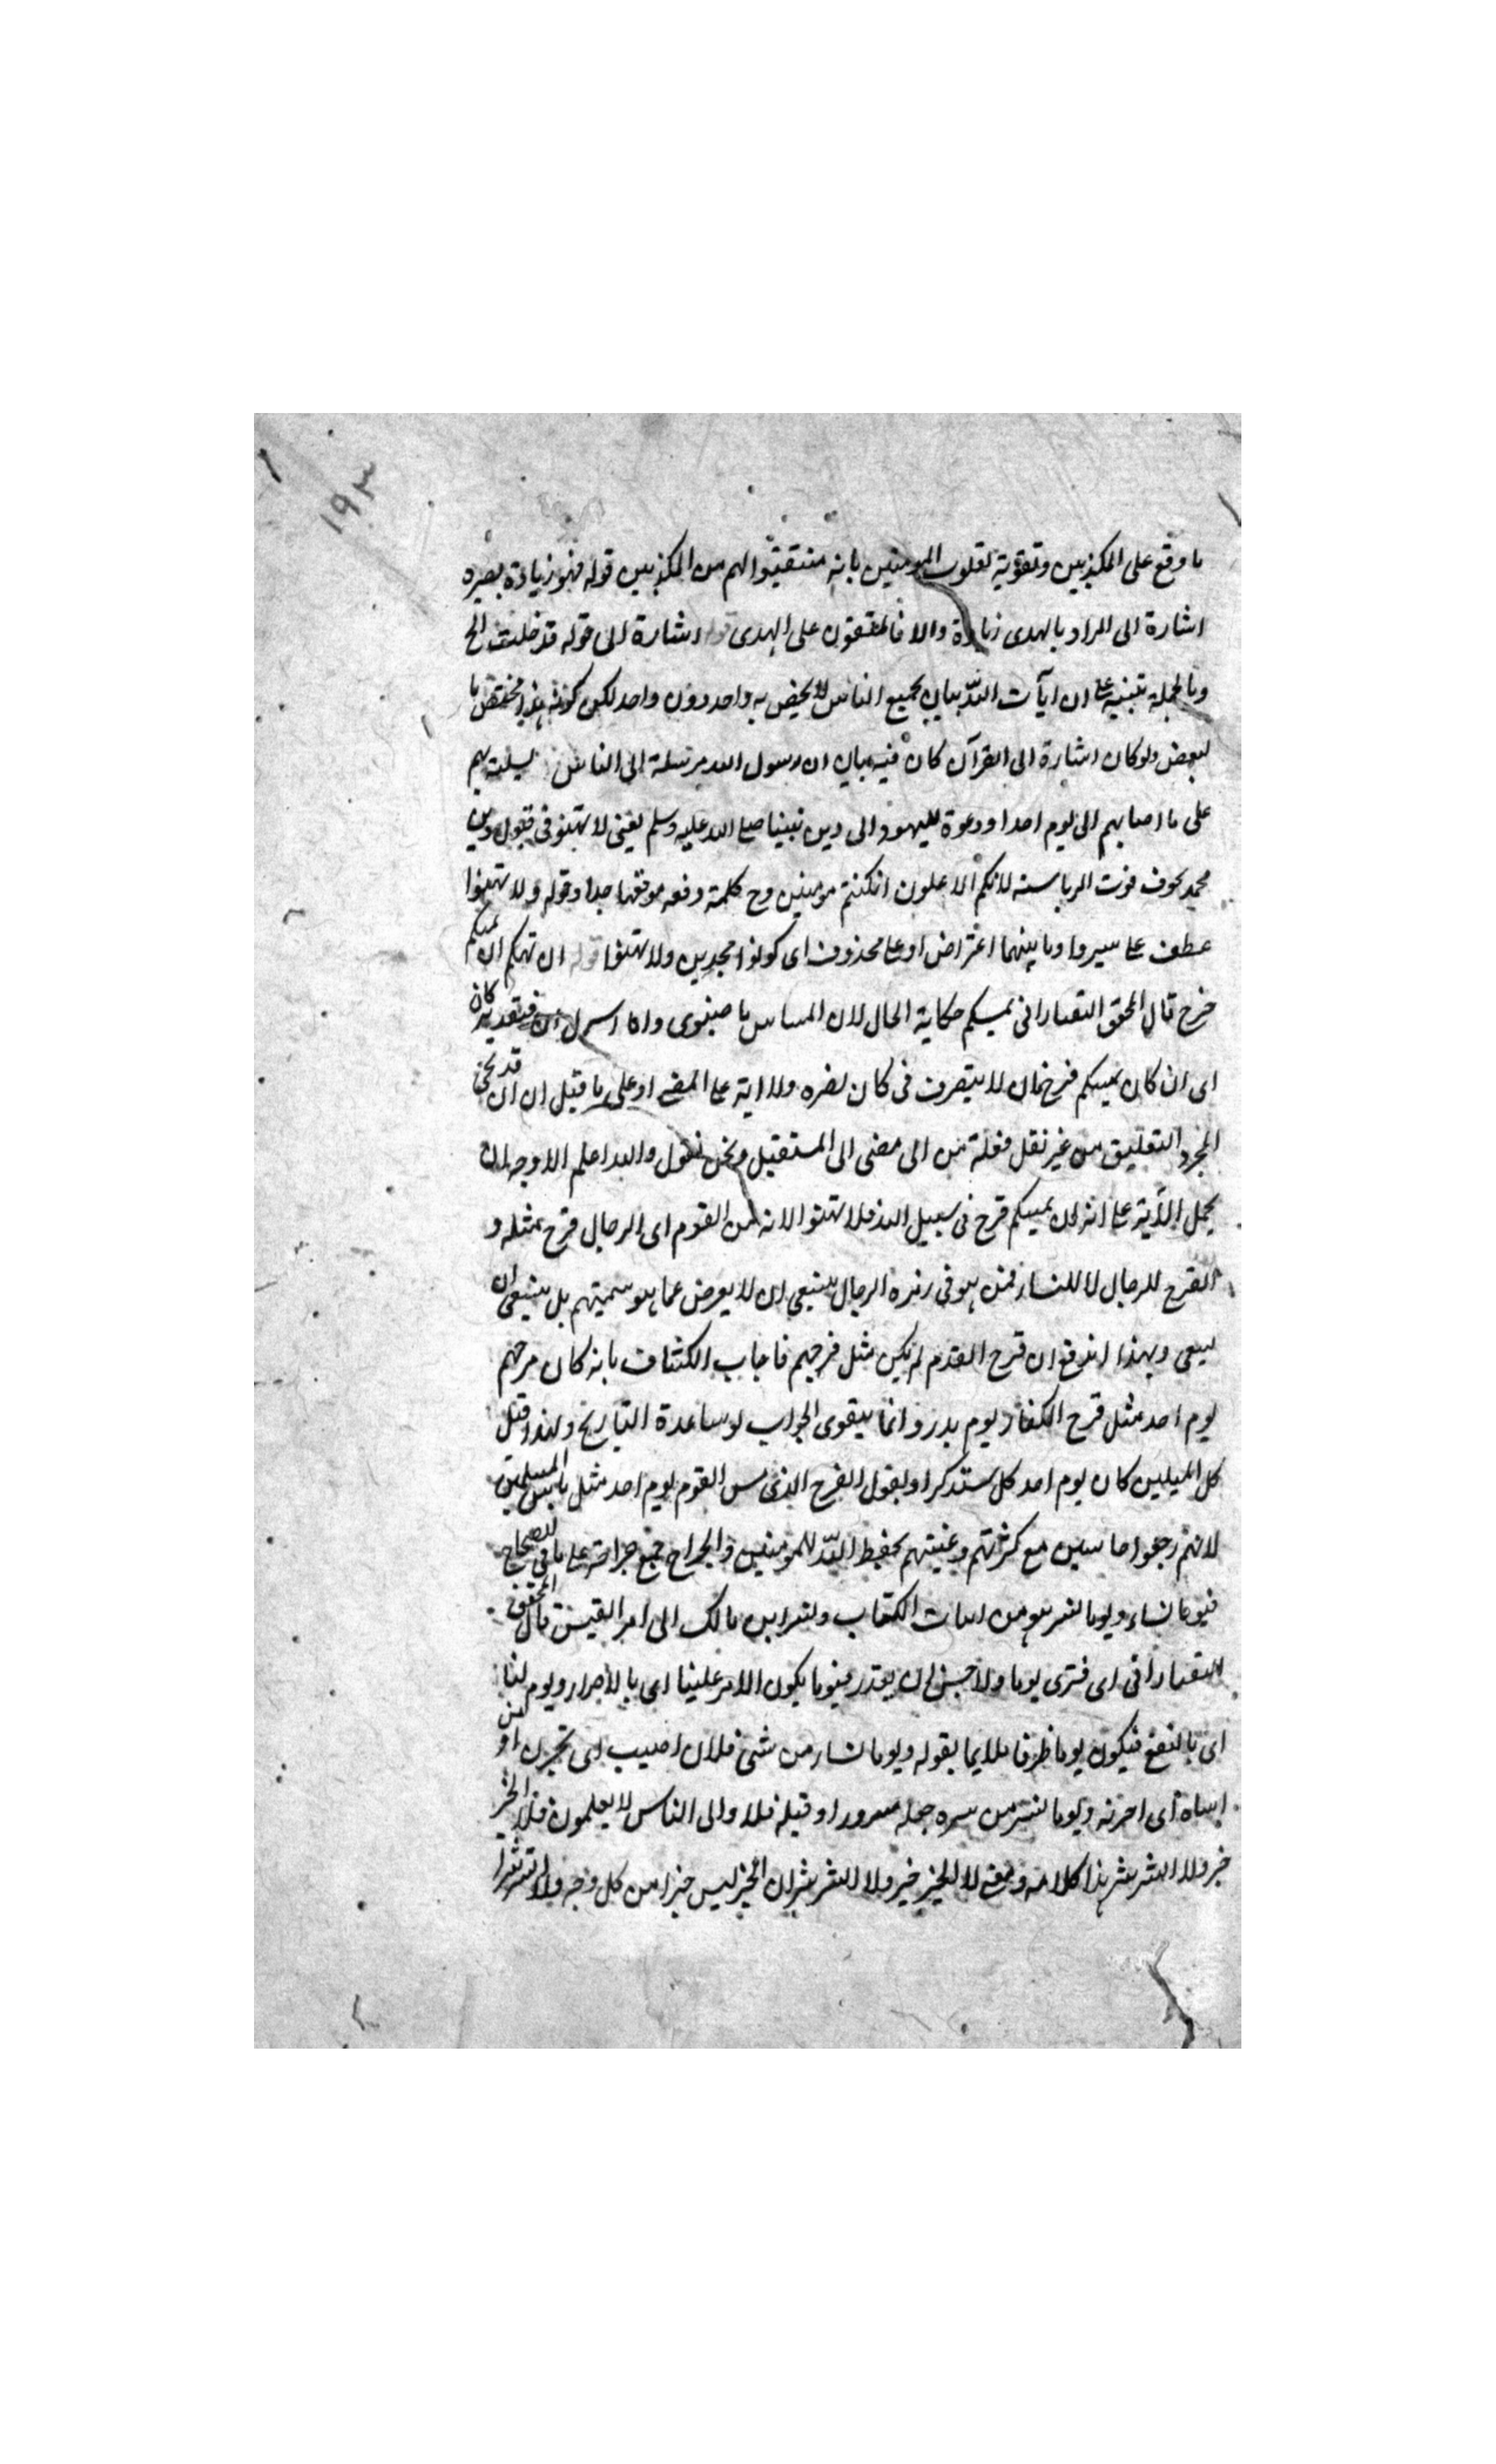 ١٩٣
ما وقع على المكذبين وتقوية لقلوب المومنين بانه منتقم لهم من المكذبين قوله فهو زيادة بصيره
اشارة الى المراد بالهدى زيادة والا فالمتقون على الهدى قوله اشارة الى قوله قد خلت الخ
وبالجملة تنبيه على ان آيات الله بيان لجميع الناس لا يخص به واحد دون واحد لكن كونه هذا مختص با
لبعض ولو كان اشارة الى القرآن كان فيه بيان ان رسول الله مرسلة الى الناس تسلية بهم
على ما اصابهم الى يوم احد او دعوة لليهود الى دين نبينا صلى الله عليه وسلم يعنى لا تهنو فى قبول دين
محمد بخوف فوت الرياسة لانكم الاعلون ان كنتم مومنين وح كلمة وقعه موقعها جدا وقوله ولا تهنوا
عطف على سيروا وما بينهما اعتراض او على محذوف اى كونوا مجدين ولا تهنوا قوله ان تهكم ان يمسكم
قرح قال المحقق التفتازانى يمسكم حكاية الحال لان المساس ماضى فتقدير كان
اى ان كان يمسكم قرح فان لا يتصرف فى كان لضره ولا اية على المضى او على ما قيل ان ان قد تجئ
لمجرد التعليق من غير نقل فعله من الى مضى الى المستقبل ونحن نقول والله اعلم الاوجه ان
يحمل الآية على انه ان يمسكم قرح فى سبيل الله فلا تهنوا لانه مس القوم اى الرجال قرح مثله و
القرح للرجال لا للنساء فمن هو فى زمرة الرجال ينبغى ان لا يعرض عما هو سمتهم بل ينبغى ان
يسعى وبهذا اندفع ان قرح القوم لم يكن مثل قرحهم فاجاب الكشاف بانه كان قرحهم
يوم احد مثل قرح الكفار يوم بدر وانما يتقوى الجواب لو ساعدة التاريخ ولهذا قيل
كلا المسلمين كان يوم احد ونقول القرح الذى مس القوم يوم احد مثل ما مس المسلمين
لانهم رجعوا خاسين مع كثرتهم وغيبتهم بحفظ الله للمومنين والجراح جمع جراحة على ما فى الصحاح
فيوما نساء ويوما نسر هو من ابيات الكتاب الى امر القيس قال المحقق
التفتازانى اى فترى يوما ولا حسن ان يقدر فيوما يكون الامر علينا اى بالاضرار ويوم لنا
اى بالنفع فيكون يوما ظرفا ملايما بقوله ويوما نساء من شئ فلان اصيب اى بحزن او من
اساه اى احزنه ويوما نسر من سره جعله مسرورا وقبله فلا والى الناس لا يعلمون فلا الخير
خير ولا الشر شر هذا كلامه ومعنى لا الخير خير ولا الشر شر ان الخير ليس خيرا من كل وجه ولا الشر شرا